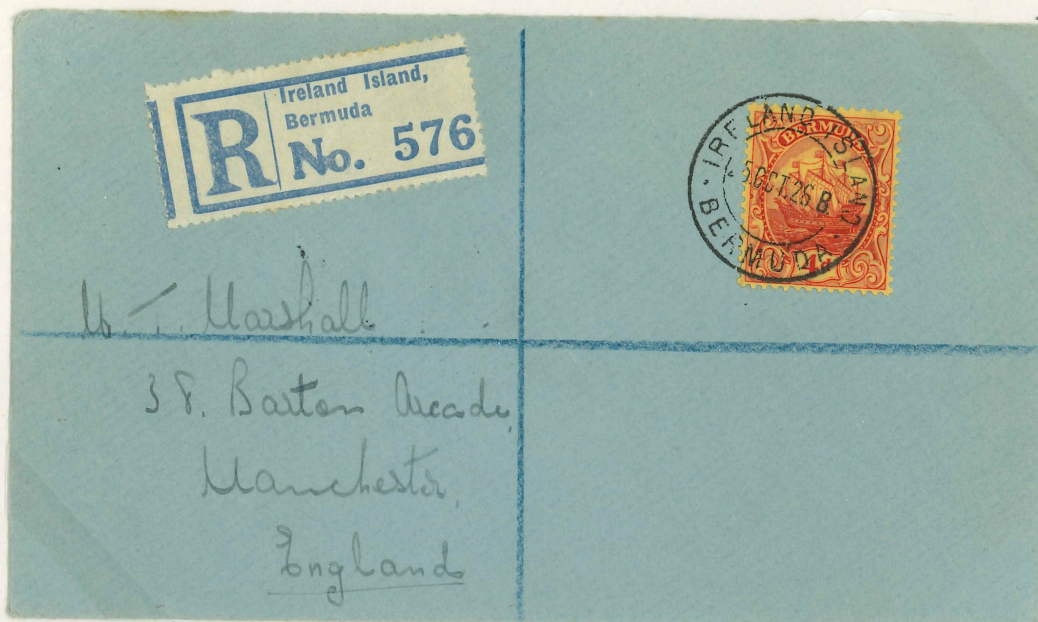 R
Ireland Island,
Bermuda
No. 576
IRELAND ISLAND
OCT.26 B.
BERMUDA
BERMUDA
Marshall
38. Barton Arcade,
Manchester,
England